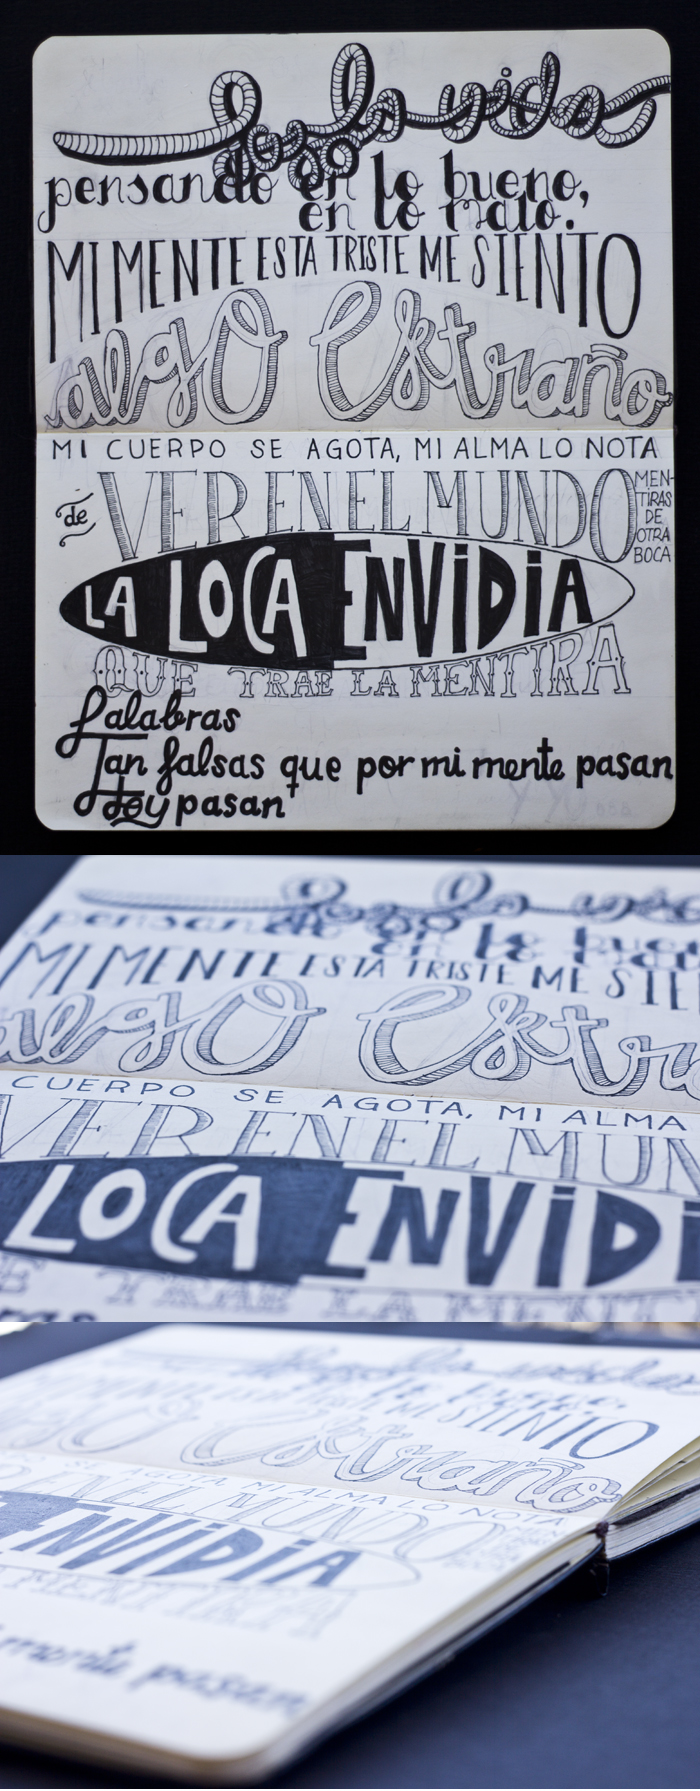 la vida
pensando en lo bueno,
en lo malo.
MI MENTE ESTA TRISTE ME SIENTO
algo extraño
MI CUERPO SE AGOTA, MI ALMA LO NOTA
de VER EN EL MUNDO
MEN-
TIRAS
DE
OTRA
BOCA
LA LOCA ENVIDIA
QUE TRAE LA MENTIRA
Palabras
Tan falsas que por mi mente pasan
Hoy pasan
pensando en lo buen
MI MENTE ESTA TRISTE ME SIE
algo extra
CUERPO SE AGOTA, MI ALMA
VER EN EL MUN
LOCA ENVIDI
E TRAE LA MENTI
bras
SIENTO
extraño
SE AGOTA, MI ALMA LO NOTA
EN EL MUNDO
ENVIDIA
mente pasan